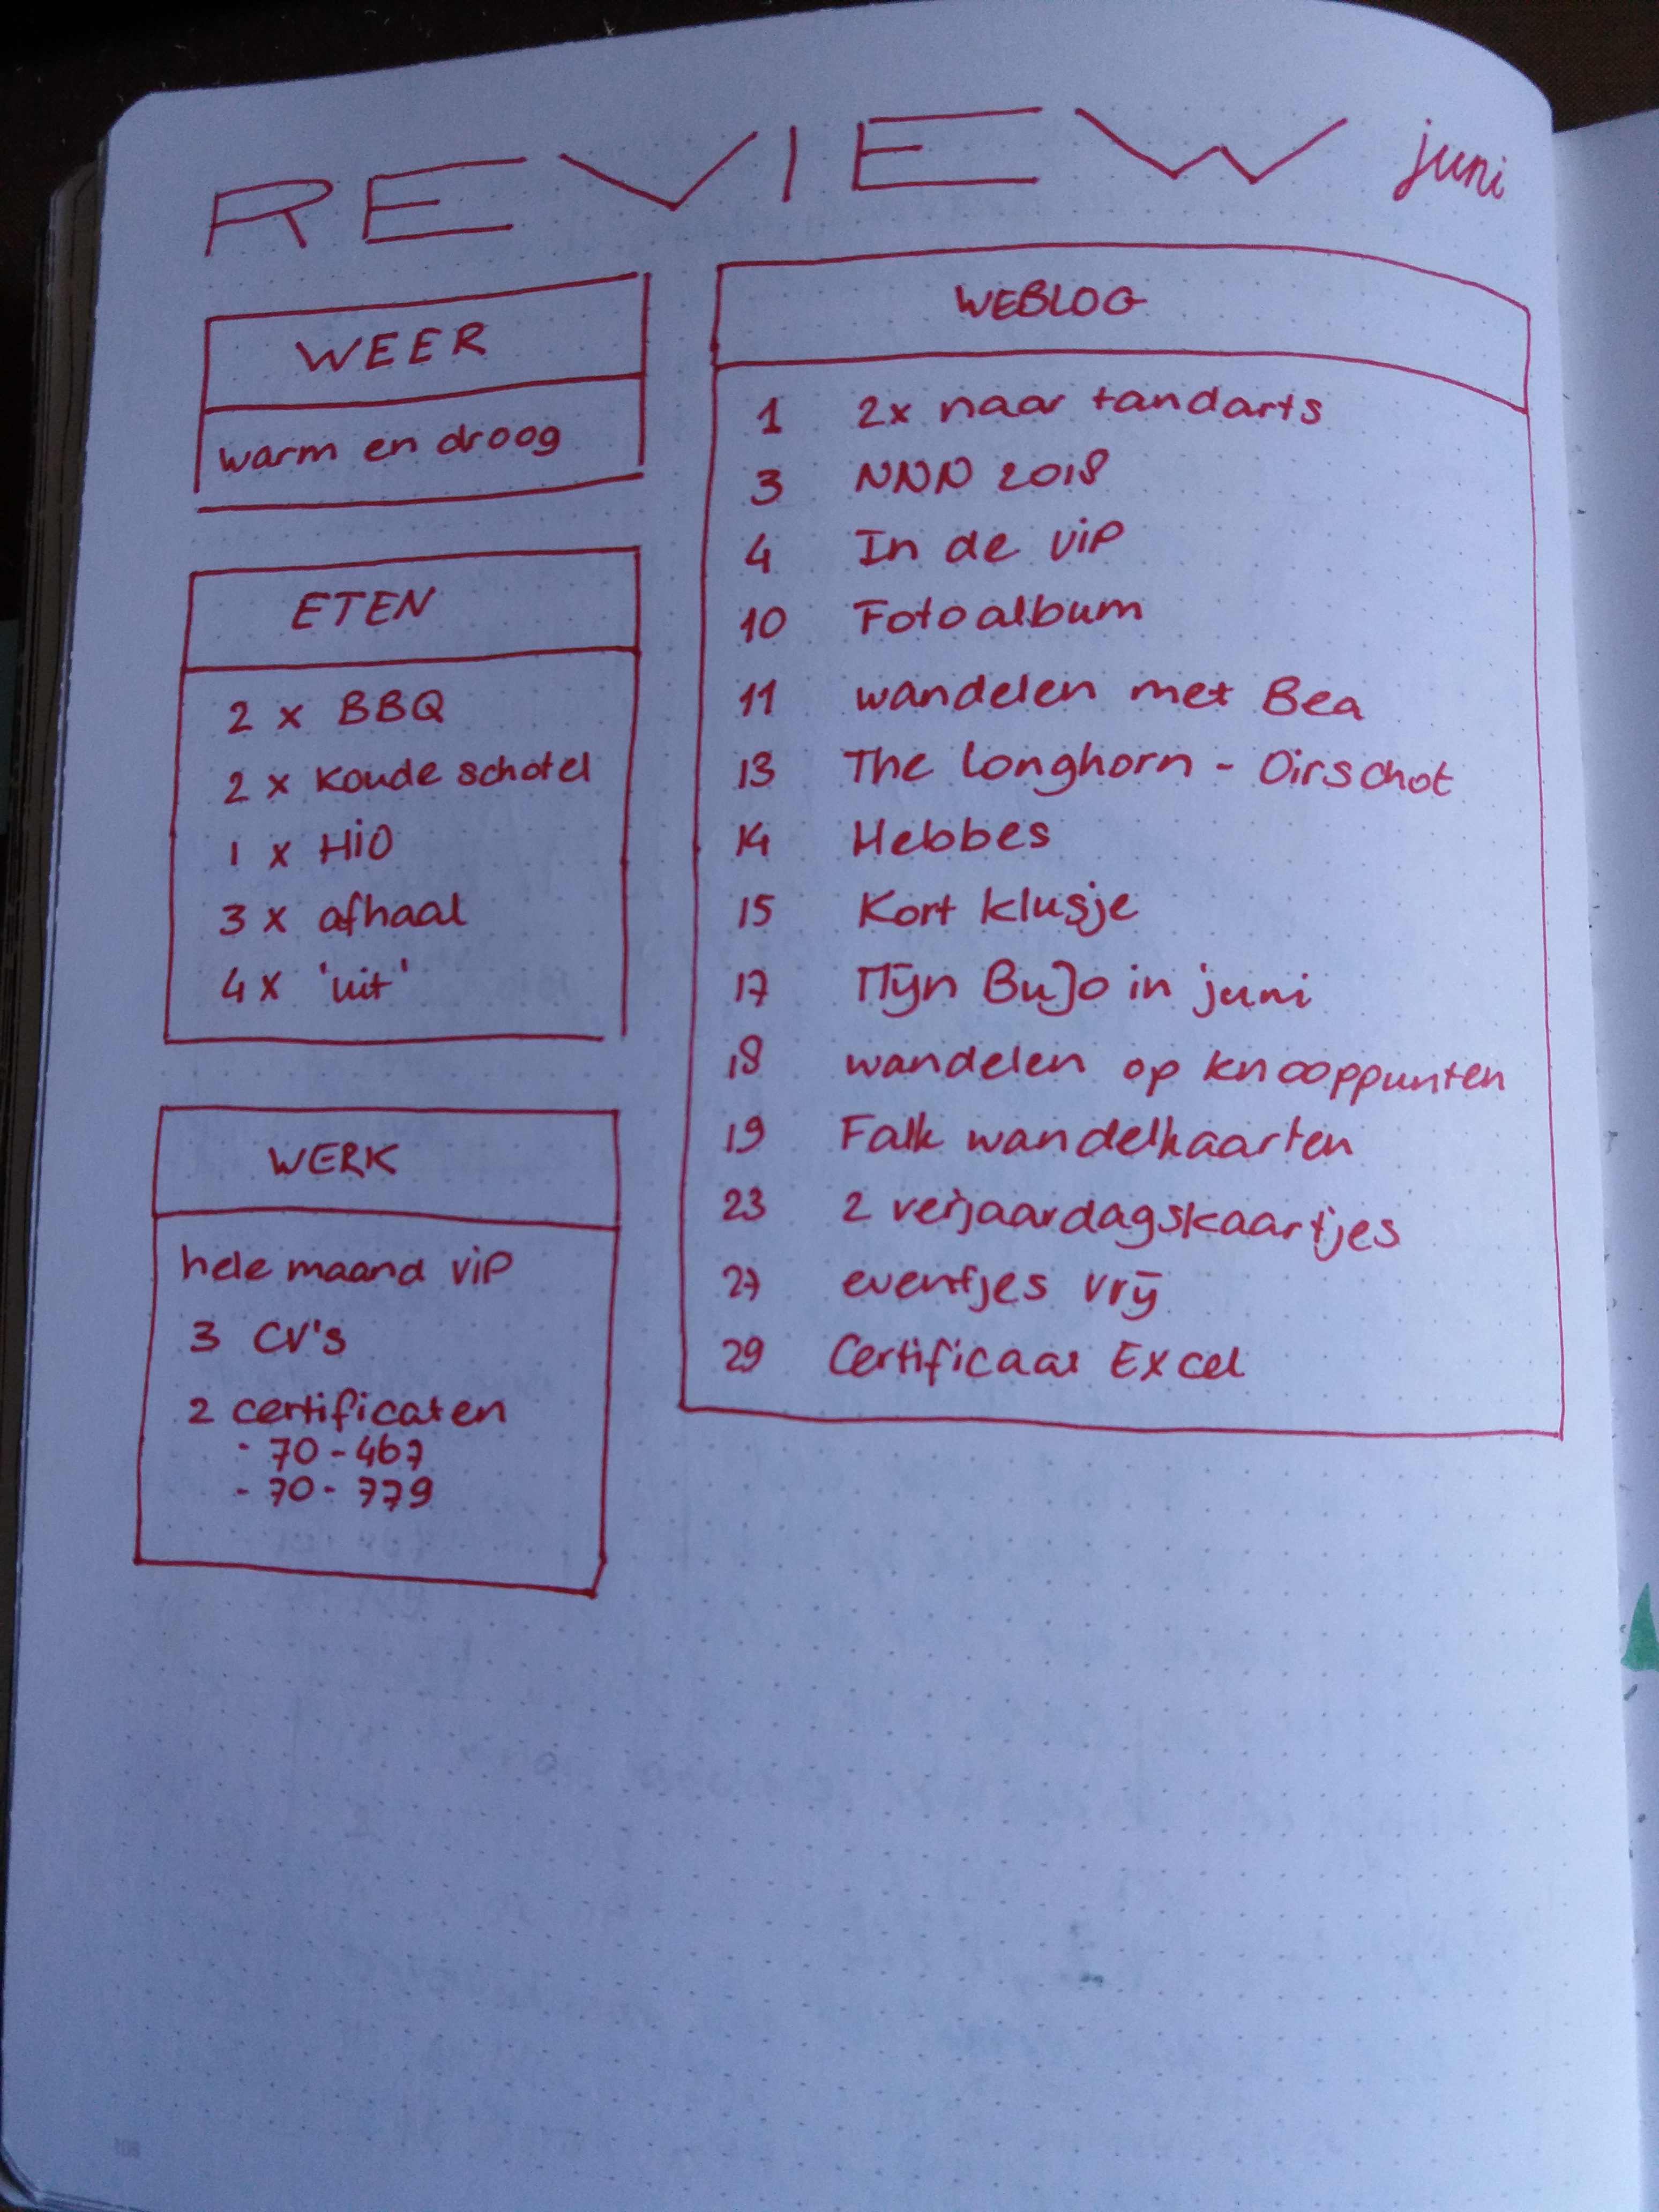 REVIEW juni
WEER
warm en droog
ETEN
2 x BBQ
2 x Koude schotel
1 x HiO
3 x afhaal
4 x 'uit'
WERK
hele maand ViP
3 CV's
2 certificaten
- 70-467
- 70-779
WEBLOG
1 2x naar tandarts
3 NNN 2018
4 In de ViP
10 Fotoalbum
11 wandelen met Bea
13 The Longhorn - Oirschot
14 Hebbes
15 Kort klusje
17 Mijn BuJo in juni
18 wandelen op knooppunten
19 Falk wandelkaarten
23 2 verjaardagskaartjes
27 eventjes vrij
29 Certificaat Excel